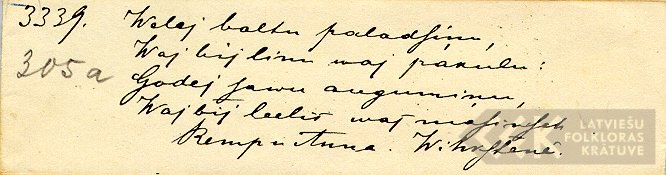 3339. Welej baltu paladsiņu,
305a Waj bij linu waj pākulu:
Godej sawu augumiņu,
Waj bij leels waj
Rempu Anna.
LATVIEŠU
FOLKLORAS
KRĀTUVE